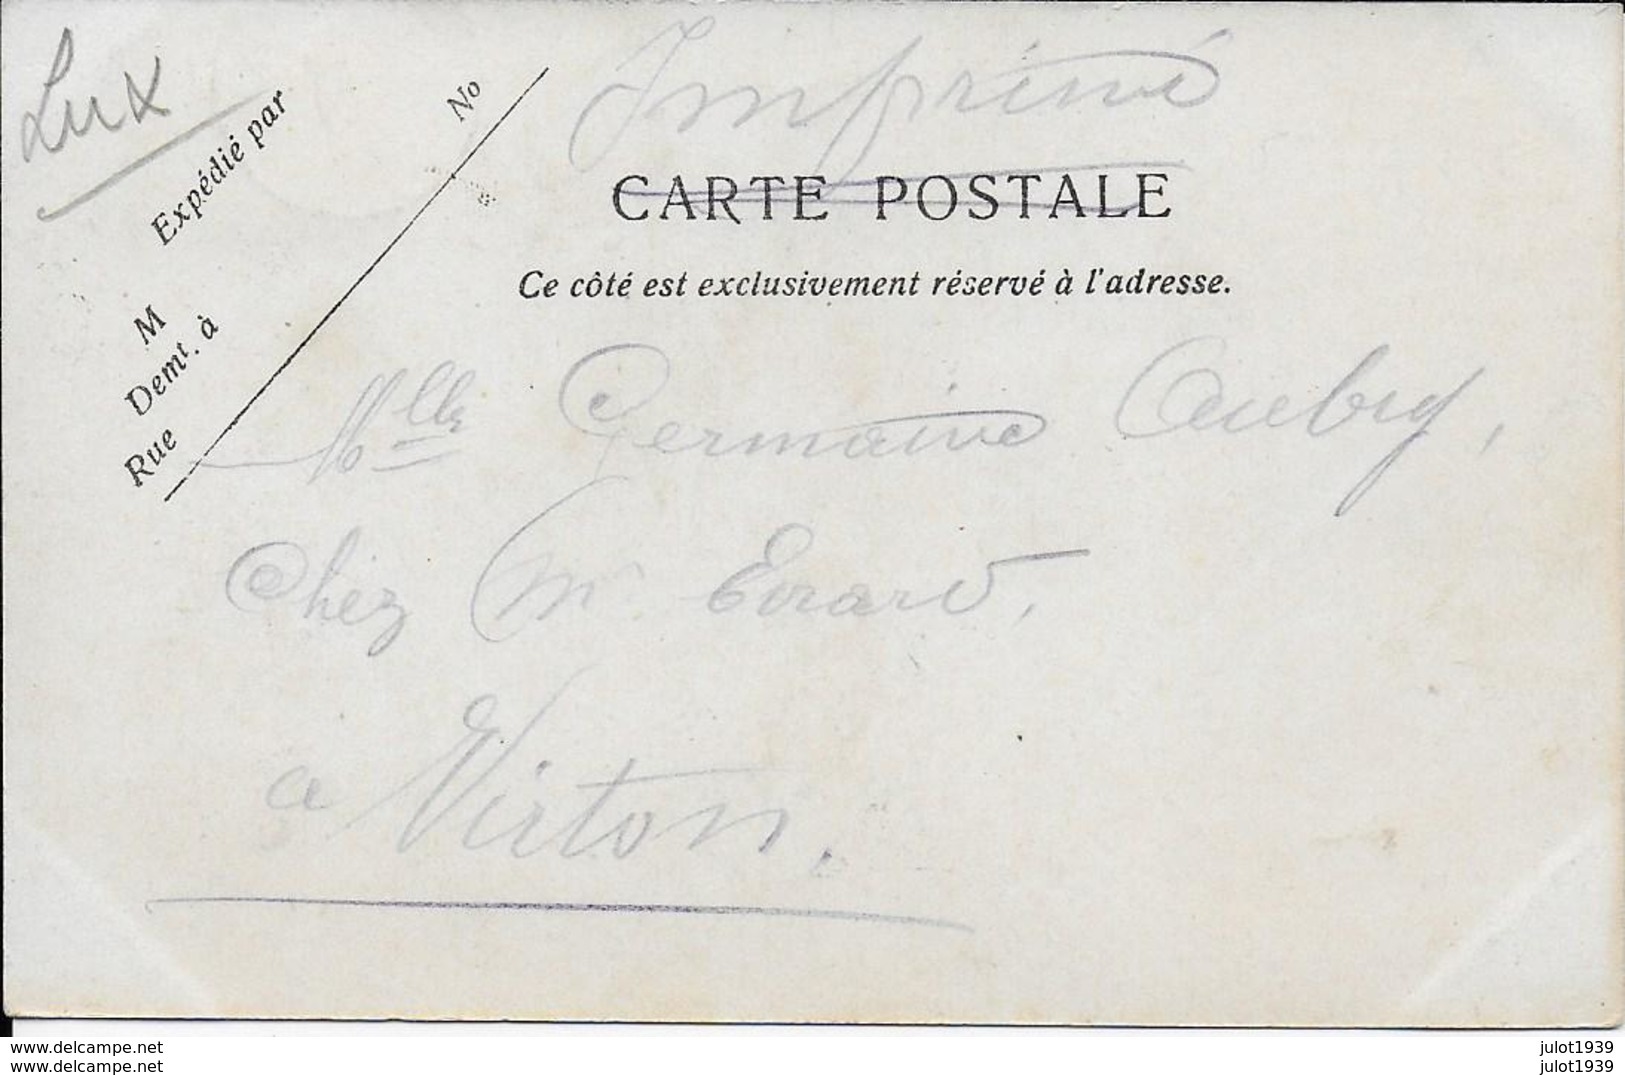 Lux
Imprimé
Expédié par
No
M
Demt. à
Rue
CARTE POSTALE
Ce côté est exclusivement réservé à l'adresse.
Mlle Germaine Aubry,
Chez Mr Evrard,
a Virton.
www.delcampe.net
julot1939
www.delcampe.net
julot1939